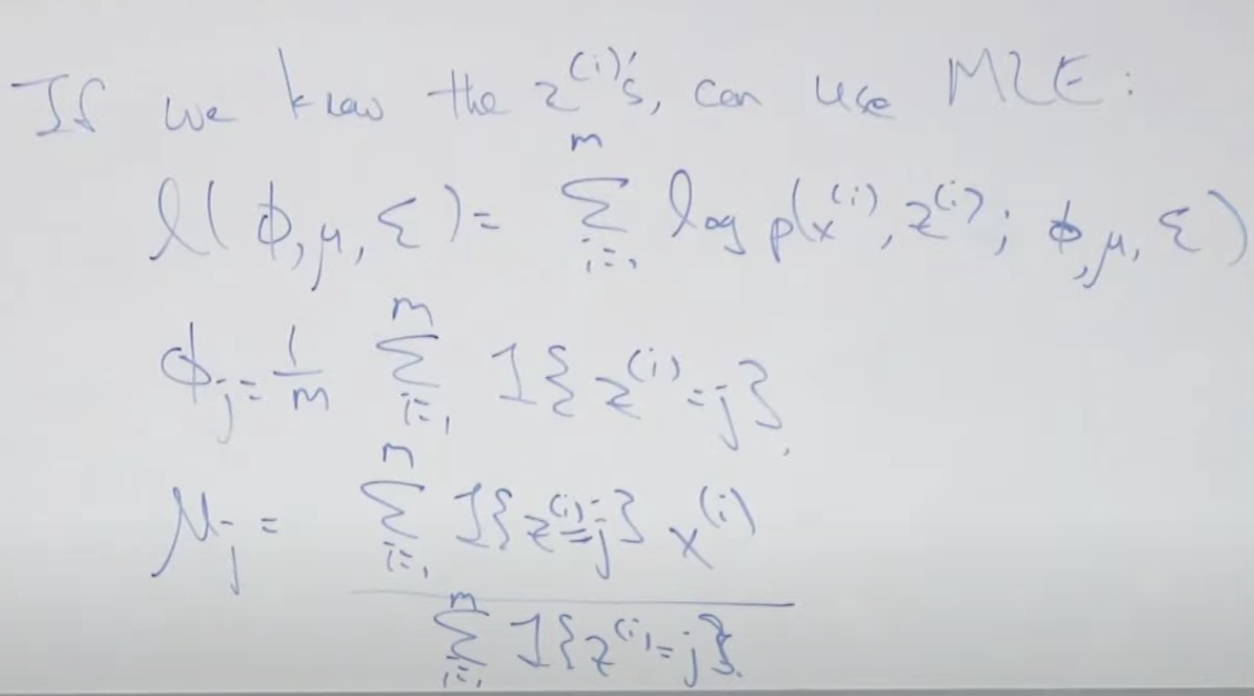 If we know the z^(i)'s, can use MLE:
l(ϕ, μ, Σ) = Σ_{i=1}^{m} log p(x^(i), z^(i); ϕ, μ, Σ)
ϕ_j = 1/m Σ_{i=1}^{m} 1{z^(i) = j}
μ_j = Σ_{i=1}^{m} 1{z^(i) = j} x^(i) / Σ_{i=1}^{m} 1{z^(i) = j}